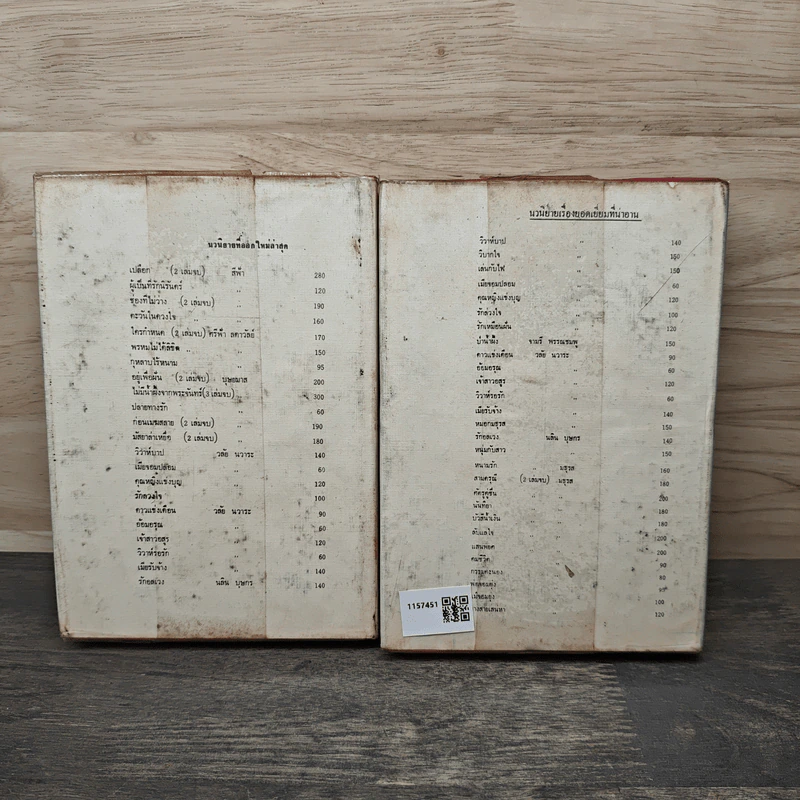 นวนิยายที่ออกใหม่ล่าสุด
เปลือก (2 เล่มจบ) สีฟ้า 280
ผู้เป็นที่รักนิรันดร์ ,, 120
ช่องที่ไม่ว่าง (2 เล่มจบ) ,, 190
ตะวันในดวงใจ ,, 160
ใครกำหนด (2 เล่มจบ) ศรีฟ้า ลดาวัลย์ 170
พรหมไม่ได้ลิขิต ,, 150
กุหลาบไร้หนาม ,, 95
อยู่เพื่อฝัน (2 เล่มจบ) บุษยมาส 200
ไม่มีน้ำผึ้งจากพระจันทร์(3 เล่มจบ),, 300
ปลายทางรัก ,, 60
ก่อนเมฆสลาย (2 เล่มจบ) ,, 190
มัสยาล่าเหยื่อ (2 เล่มจบ) ,, 180
วิวาห์บาป วลัย นวาระ 140
เมียจอมปลอม ,, 60
คุณหญิงแข่งบุญ ,, 120
รักลวงใจ ,, 100
ดาวแข่งเดือน วลัย นวาระ 90
ย้อมอรุณ ,, 60
เจ้าสาวอสูร ,, 120
วิวาห์รอรัก ,, 60
เมียรับจ้าง ,, 140
รักอลเวง นลิน บุษกร 140
นวนิยายเรื่องยอดเยี่ยมที่น่าอ่าน
วิวาห์บาป ,, 140
วิบากใจ ,, 150
เล่นกับไฟ ,, 150
เมียจอมปลอม ,, 60
คุณหญิงแข่งบุญ ,, 120
รักลวงใจ ,, 100
รักเหมือนฝัน ,, 120
บ่าน้ำผึ้ง จามรี พรรณชมพู 150
ดาวแข่งเดือน วลัย นวาระ 90
ย้อมอรุณ ,, 60
เจ้าสาวอสูร ,, 120
วิวาห์รอรัก ,, 60
เมียรับจ้าง ,, 140
หมอกมธุรส ,, 150
รักอลเวง นลิน บุษกร 140
หนุ่มกับสาว ,, 150
หนามรัก ,, มธุรส 160
สามดรุณี (2 เล่มจบ) มธุรส 180
ศัตรูคู่ชื่น ,, 200
นันทิยา ,, 180
บัวสีน้ำเงิน ,, 180
ลับแลใจ ,, 200
แสนพยศ ,, 200
คมชีวิต ,, 90
80
95
100
120
1157451